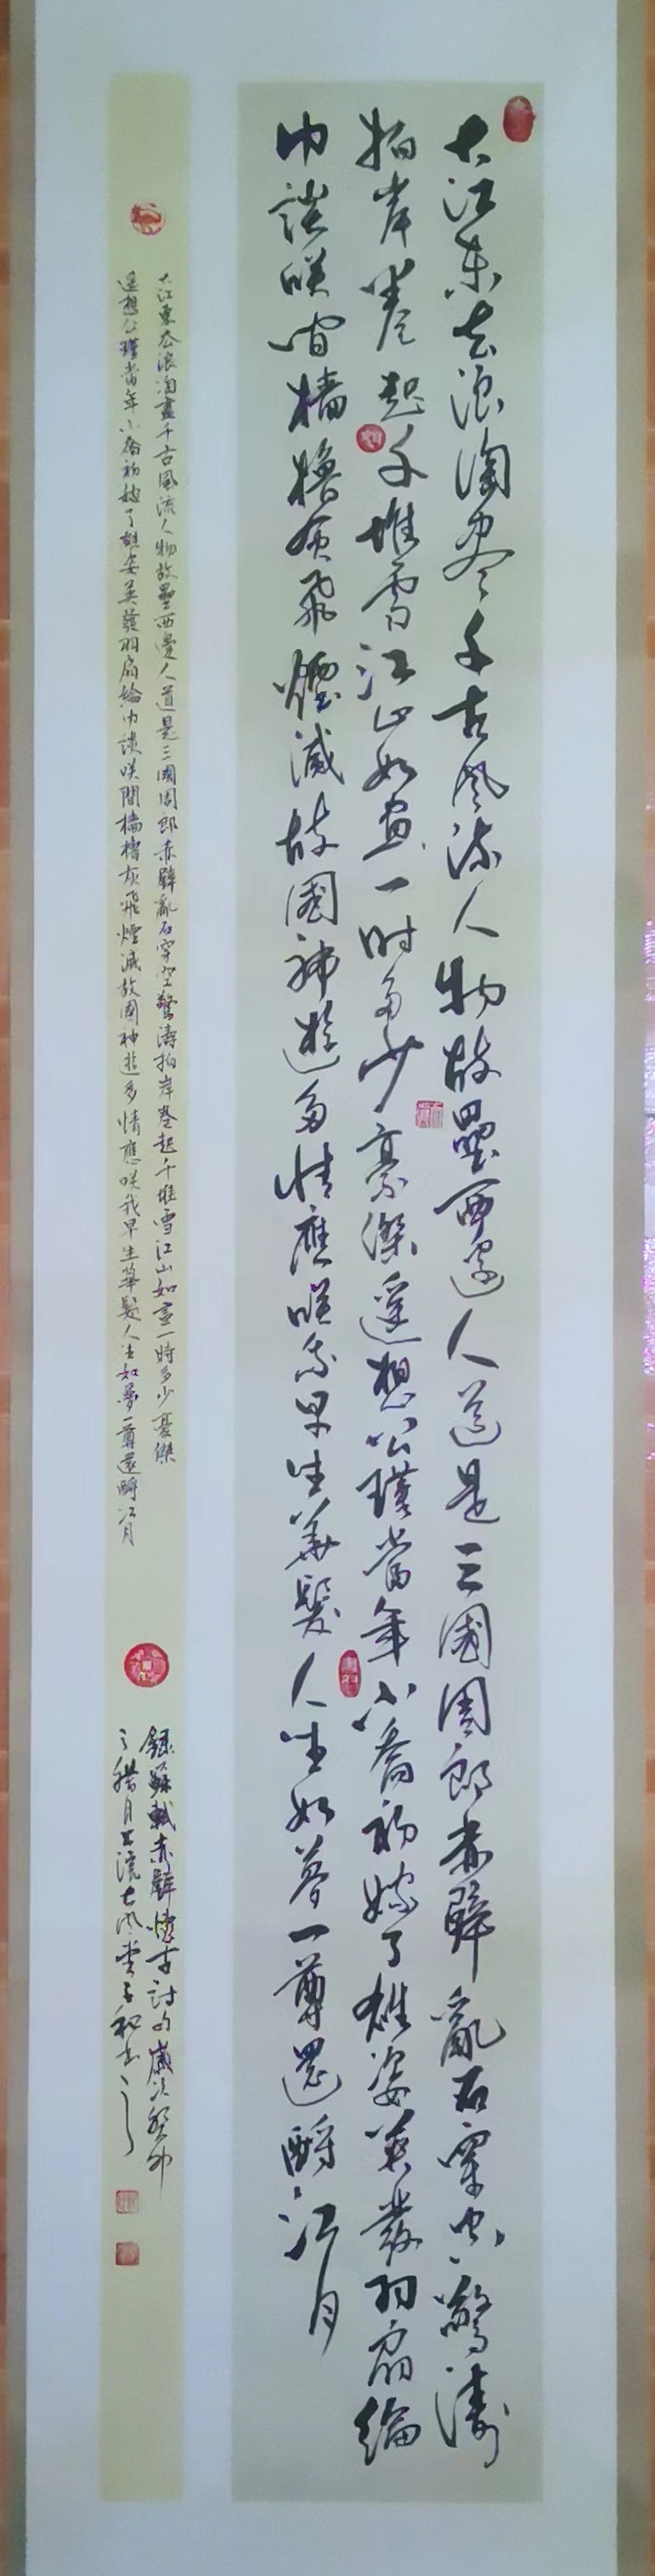 大江东去浪淘尽千古風流人物故壘西边人道是三國周郎赤壁亂石穿空驚濤
拍岸卷起千堆雪江山如画一时多少豪傑遥想公瑾當年小喬初嫁了雄姿英發羽扇綸
巾談咲间檣櫓灰飛煙滅故國神遊多情應咲我早生華髮人生如夢一尊還酹江月
大江東去浪淘盡千古風流人物故壘西邊人道是三國周郎赤壁亂石穿空驚濤拍岸卷起千堆雪江山如畫一時多少豪傑
遥想公瑾當年小喬初嫁了雄姿英發羽扇綸巾談咲間檣櫓灰飛煙滅故國神遊多情應咲我早生華髮人生如夢一尊還酹江月
録蘇軾赤壁懷古詞句歲次癸卯
之腊月